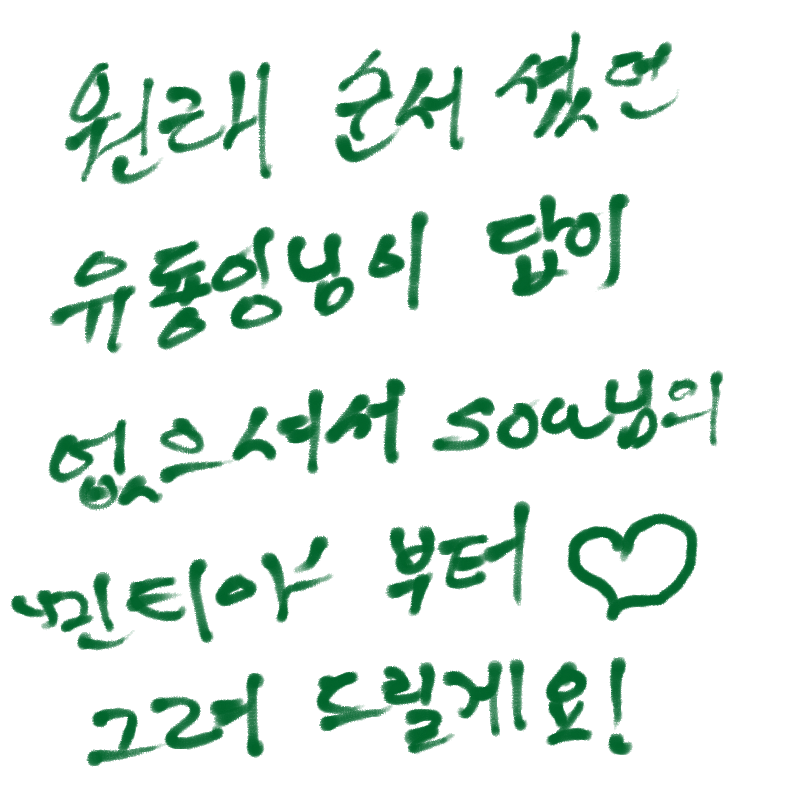 원래 순서 셨던
유퐁잉님이 답이
없으셔서 soa님의
민티아 부터 ♡
그려 드릴게요!